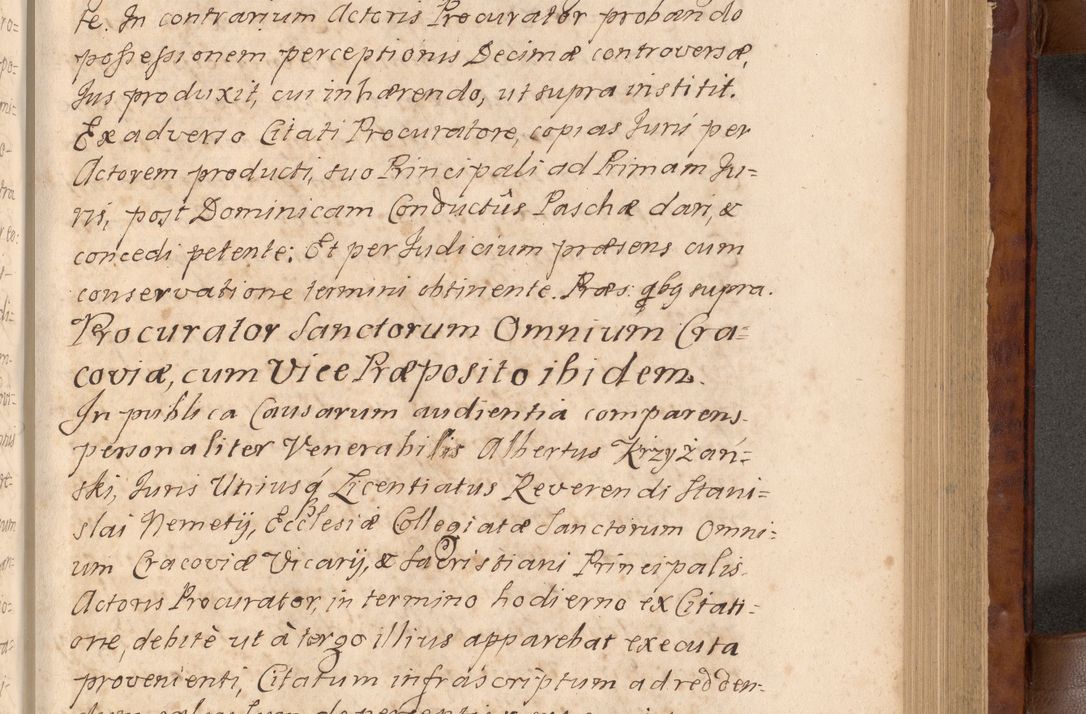 te. In contrarium Actoris Procurator probando
possessionem perceptionis Decimæ controversæ,
Jus produxit, cui inhærendo, ut supra institit.
Ex adverso Citati Procuratore, copias Juris per
Actorem producti, suo Principali ad Primam Ju=
ris, post Dominicam Conductûs Paschæ dari, &
concedi petente; Et per Judicium præsens cum
conservatione termini obtinente. Præs: qbg supra.
Procurator Sanctorum Omnium Cra=
coviæ, cum Vice Præposito ibidem.
In publica Causarum audientia comparens
personaliter Venerabilis Albertus Krzyżań=
ski, Juris Utriusq́ Licentiatus Reverendi Stani=
slai Nemetij, Ecclesiæ Collegiatæ Sanctorum Omni=
um Cracoviæ Vicarij, & Sacristiani Principalis
Actoris Procurator, in termino hodierno ex Citati=
one, debitè ut à tergo illius apparebat executa
provenienti, Citatum infrascriptum ad redden=